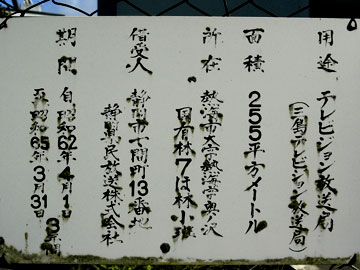 用途 テレビジョン放送局
(三島テレビジョン放送局)
面積 255平方メートル
所在 熱海市大字熱海字奥ノ沢
国有林 7は林小班
借受人 静岡市七間町13番地
静岡 放送株式会社
期間 自昭和62年4月1日
至昭和65年3月31日 3 間